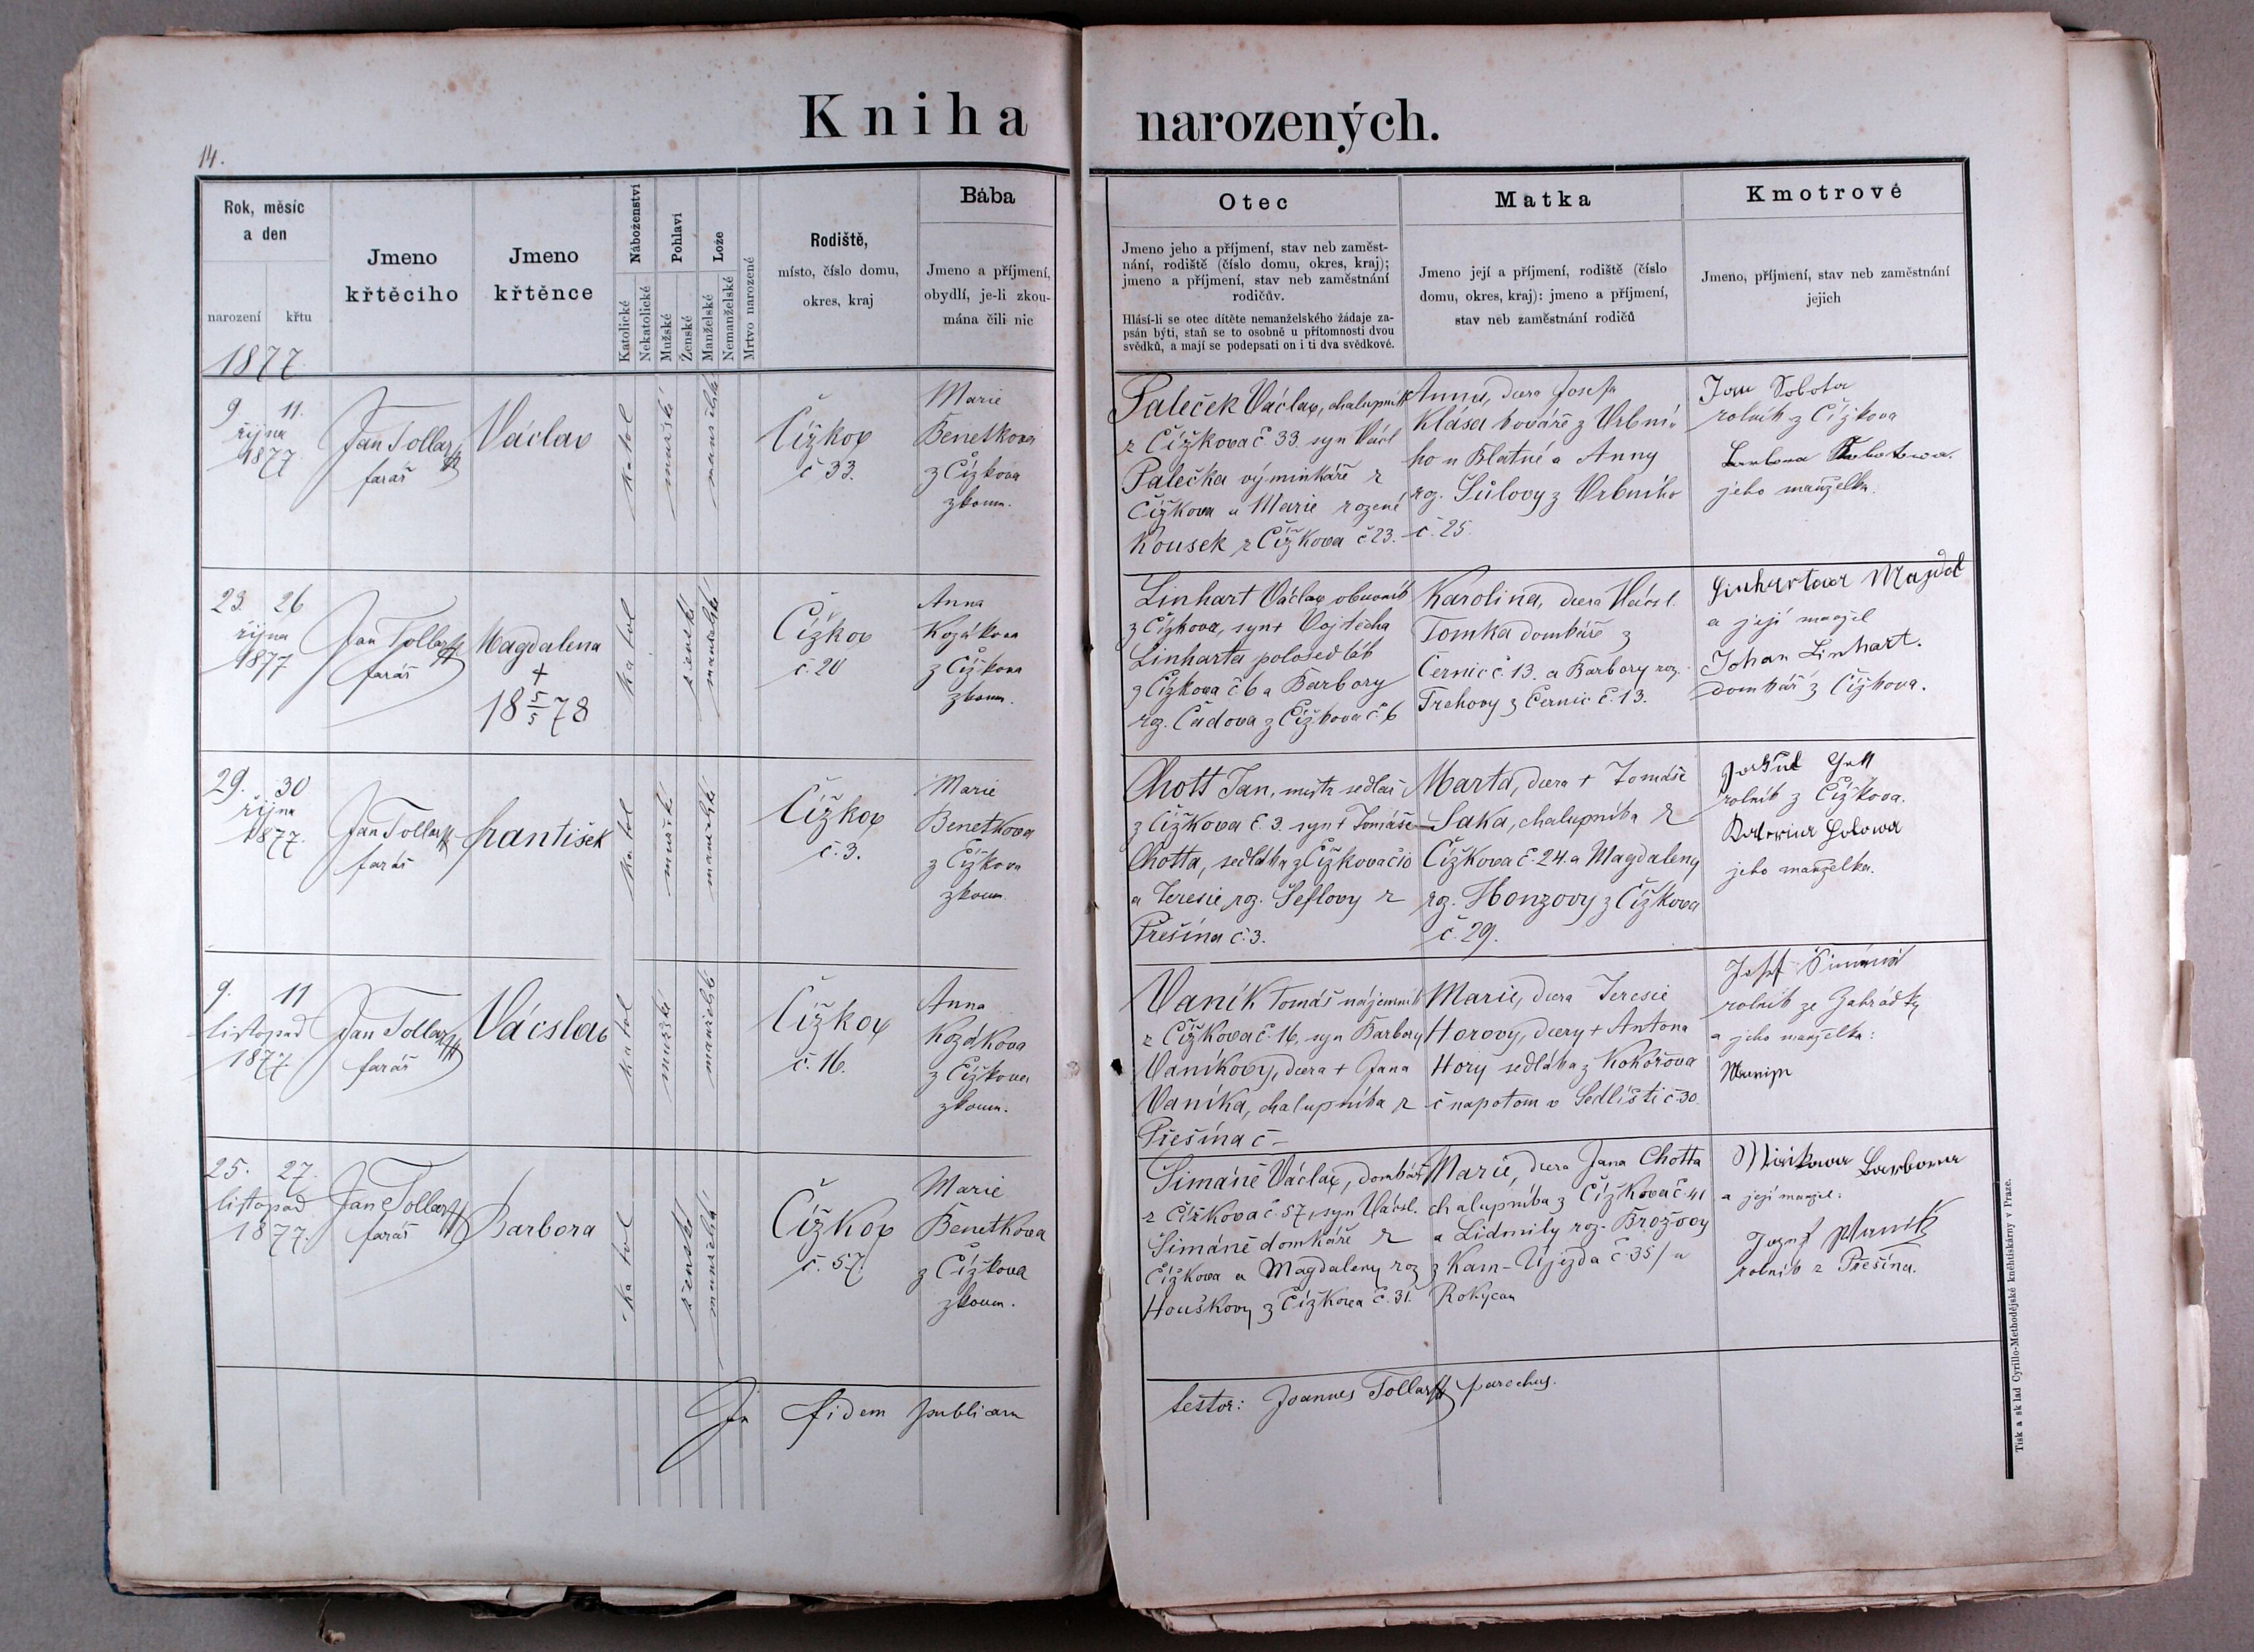 Kniha narozených.
14.
Rok, měsíc
a den
narození
křtu
1877
Jmeno
křtěcího
Jmeno
křtěnce
Náboženství
Katolické
Nekatolické
Pohlaví
Mužské
Ženské
Lože
Manželské
Nemanželské
Mrtvo narozené
Rodiště,
místo, číslo domu,
okres, kraj
Bába
Jmeno a příjmení,
obydlí, je-li zkou-
mána čili nic
Otec
Jmeno jeho a příjmení, stav neb zaměst-
nání, rodiště (číslo domu, okres, kraj);
jmeno a příjmení, stav neb zaměstnání
rodičův.
Hlásí-li se otec dítěte nemanželského žádaje za-
psán býti, staň se to osobně u přítomnosti dvou
svědků, a mají se podepsati on i ti dva svědkové.
Matka
Jmeno její a příjmení, rodiště (číslo
domu, okres, kraj): jmeno a příjmení,
stav neb zaměstnání rodičů
Kmotrové
Jmeno, příjmení, stav neb zaměstnání
jejich
9. 11.
října
1877
Jan Tollar
farář
Václav
katol
mužské
manželské
Čížkov
č 33.
Marie
Benetkova
z Čížkova
zkoum.
Paleček Václav, chalupník
z Čížkova č 33. syn Václ
Palečka výminkáře z
Čížkova a Marie rozené
Kousek z Čížkova č 23.
Anna, dcera Josefa
Klása kováře z Vrbní-
ho u Blatné a Anny
roz. Šůlovy z Vrbního
č. 25.
Jan Sobota
rolník z Čížkova
jeho manželka.
23. 26
října
1877
Jan Tollar
farář
Magdalena
+
18 5/5 78
katol
ženské
manželské
Čížkov
č. 20
Anna
Kozákova
z Čížkova
zkoum.
Linhart Václav obuvník
z Čížkova, syn + Vojtěcha
Linharta polosedlák
z Čížkova č 6 a Barbory
roz. Čadova z Čížkova č 6
Karolina, dcera Václ.
Tomka domkáře z
Černic č. 13. a Barbory roz.
Trehovy z Černic č. 13.
a její manžel
Johan Linhart.
domkář z Čížkova.
29. 30
října
1877.
Jan Tollar
farář
František
katol
mužské
manželské
Čížkov
č. 3.
Marie
Benetkova
z Čížkova
zkoum.
Chott Jan, mistr sedlář
z Čížkova č. 3. syn + Tomáše
Chotta, sedláka z Čížkova č 10
a Teresie roz. Šeflovy z
Přešína č. 3.
Marta, dcera + Tomáše
Saka, chalupníka z
Čížkova č. 24. a Magdaleny
roz. Honzovy z Čížkova
č. 29.
rolník z Čížkova.
jeho manželka.
9. 11
listopad
1877.
Jan Tollar
farář
Václav
katol
mužské
manželské
Čížkov
č. 16.
Anna
Kozákova
z Čížkova
zkoum.
Vaník Tomáš nájemník
z Čížkova č. 16, syn Barbory
Vaníkovy, dcera + Jana
Vaníka, chalupníka z
Přešína č -
Marie, dcera Teresie
Horovy, dcery + Antona
Hory sedláka z Kokořova
č napotom v Sedlišti č 30.
rolník ze Zahrádky
a jeho manželka:
25. 27.
listopad
1877.
Jan Tollar
farář
Barbora
katol
ženské
manželské
Čížkov
č. 57.
Marie
Benetkova
z Čížkova
zkoum.
Simáně Václav, domkář
z Čížkova č. 57, syn Václ.
Simáně domkáře z
Čížkova a Magdaleny roz
Houškovy z Čížkova č. 31.
Marie, dcera Jana Chotta
chalupníka z Čížkova č. 41
a Lidmily roz. Brožovy
z Kam-Újezda č. 35/u
Rokycan
a její manžel:
rolník z Přešína.
In fidem publicam
testor: Joannes Tollar parochus.
Tisk a sklad Cyrillo-Methodějské knihtiskárny v Praze.